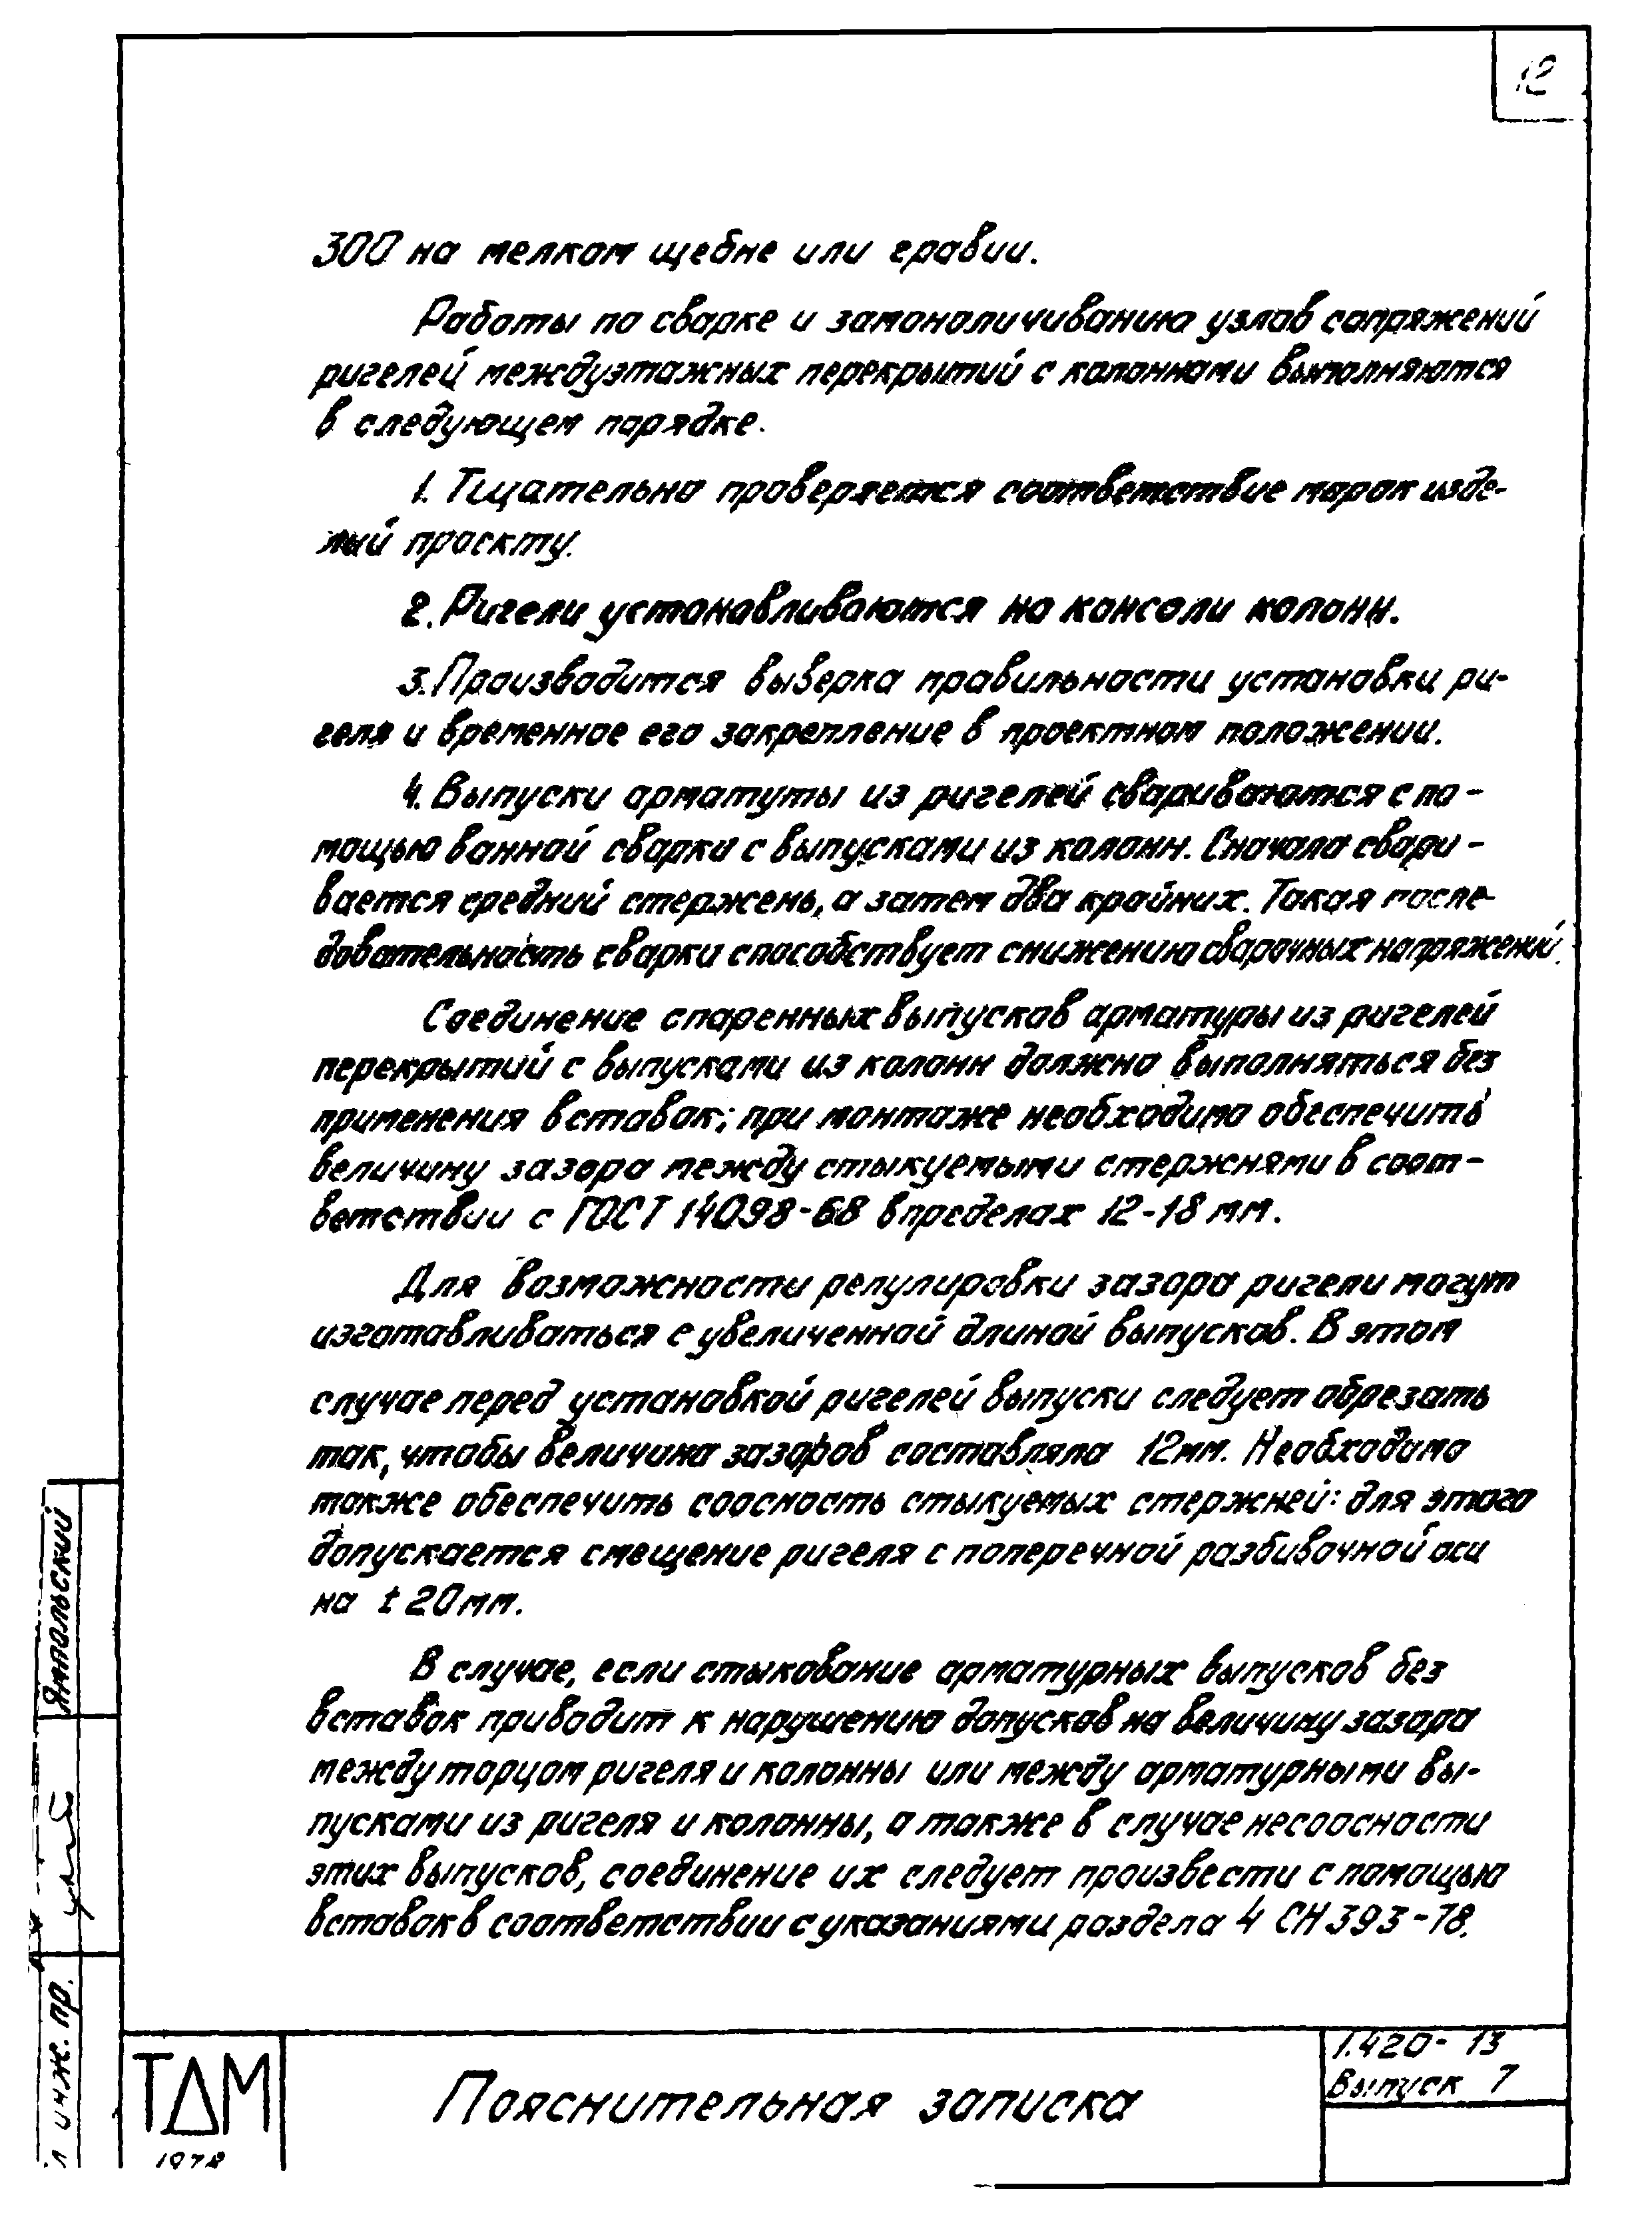 12
300 на мелком щебне или гравии.
Работы по сварке и замоноличиванию узлов сопряжений
ригелей междуэтажных перекрытий с колоннами выполняются
в следующем порядке.
1. Тщательно проверяется соответствие марок изде-
лий проекту.
2. Ригели устанавливаются на консоли колонн.
3. Производится выверка правильности установки ри-
геля и временное его закрепление в проектном положении.
4. Выпуски арматуты из ригелей свариваются с по-
мощью ванной сварки с выпусками из колонн. Сначала свари-
вается средний стержень, а затем два крайних. Такая после-
довательность сварки способствует снижению сварочных напряжений.
Соединение спаренных выпусков арматуры из ригелей
перекрытий с выпусками из колонн должно выполняться без
применения вставок; при монтаже необходимо обеспечить
величину зазора между стыкуемыми стержнями в соот-
ветствии с ГОСТ 14098-68 в пределах 12-18 мм.
Для возможности регулировки зазора ригели могут
изготавливаться с увеличенной длиной выпусков. В этом
случае перед установкой ригелей выпуски следует обрезать
так, чтобы величина зазоров составляла 12мм. Необходимо
также обеспечить соосность стыкуемых стержней: для этого
допускается смещение ригеля с поперечной разбивочной оси
на ± 20мм.
В случае, если стыкование арматурных выпусков без
вставок приводит к нарушению допусков на величину зазора
между торцом ригеля и колонны или между арматурными вы-
пусками из ригеля и колонны, а также в случае несоосности
этих выпусков, соединение их следует произвести с помощью
вставок в соответствии с указаниями раздела 4 СН 393-78.
Ямпольский
инж. пр.
ТДМ
1978
Пояснительная записка
1.420-13
Выпуск 7